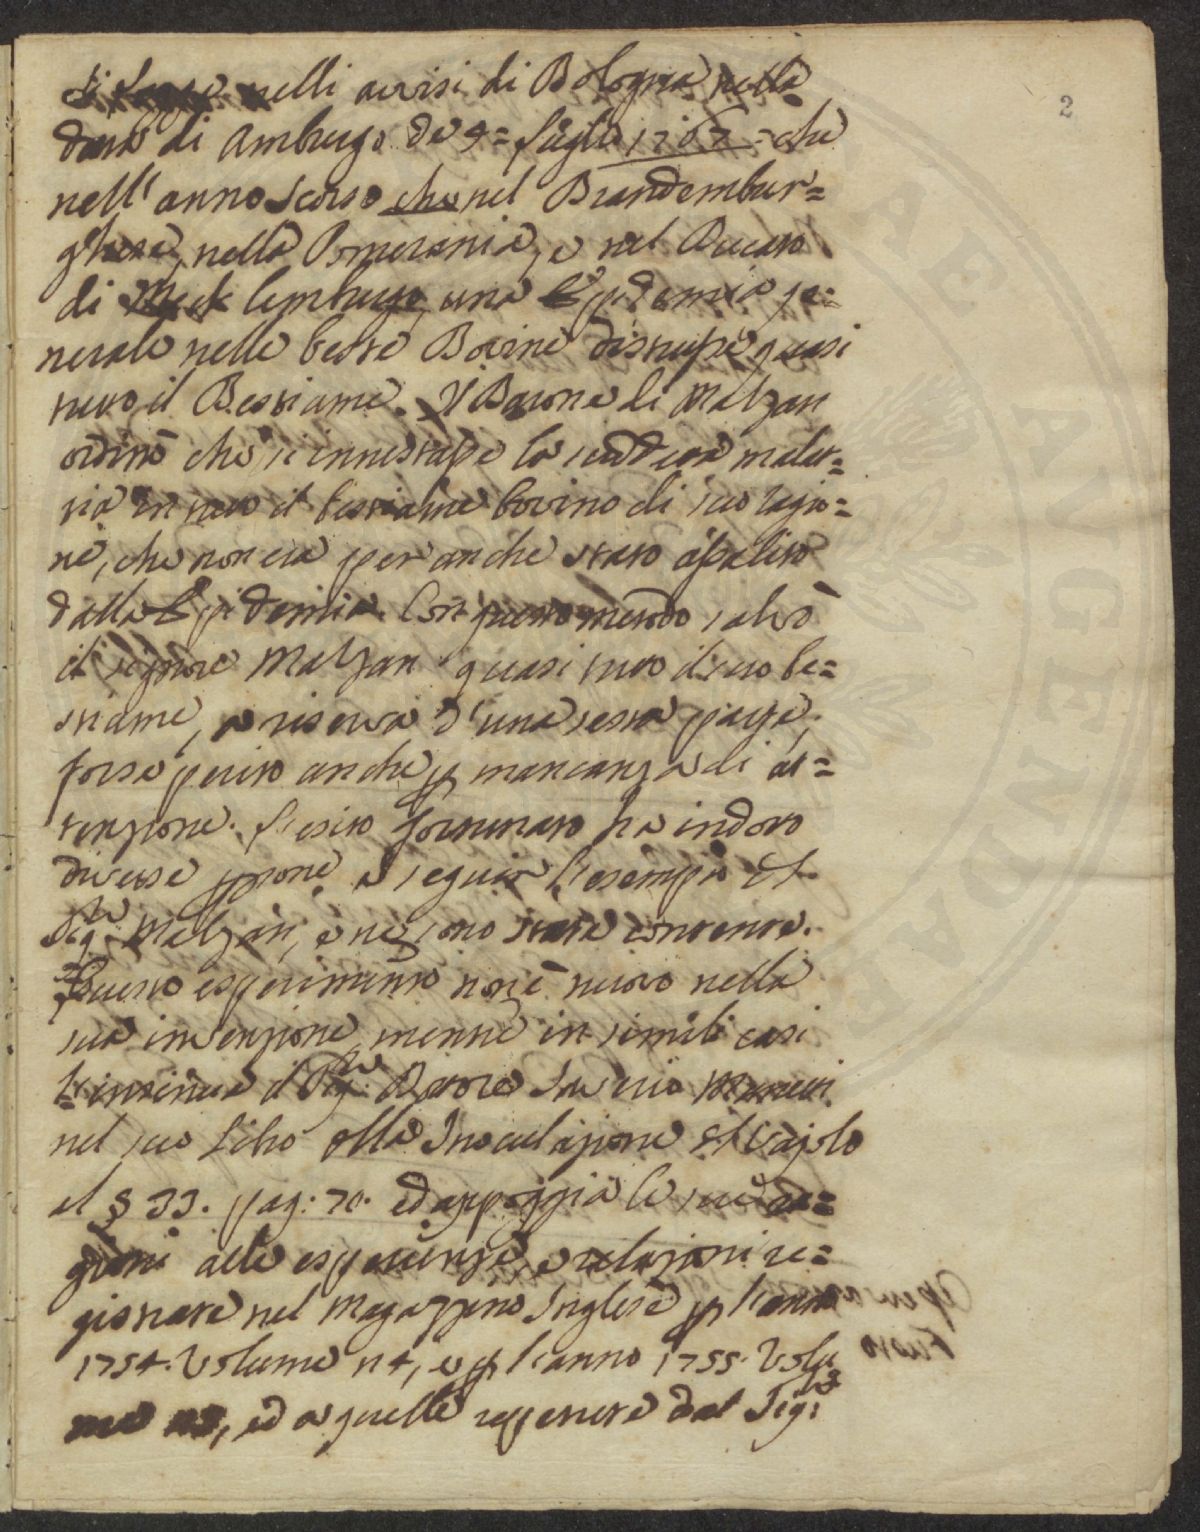 2
Si legge nelli avvisi di Bologna nella
data di Amburgo de 4= luglio 1767 = che
nell'anno scorso che nel Brandembur=
ghese, nella Pomerania, e nel Ducato
di Mecklemburgo, una Epidemia ge=
nerale nelle bestie Bovine distrusse quasi
tutto il Bestiame. Il Barone di Malzan
ordinò che si innestasse la suddetta mater=
ria in tutto il bestiame bovino di sua ragio=
ne, che non era per anche stato assalito
dalla Epidemia. Con questo metodo salvò
il signore Malzan quasi tutto il suo be=
stiame, a riserva d'una sesta parte,
forse perito anche p mancanza di at=
tenzione. L'esito fortunato ha indotto
diverse psone a seguir l'esempio del
Sigre Malzan, e ne sono state contente.
Questo esperimento non è nuovo nella
sua invenzione, mentre in simili casi
l'insinua il Sigre Dottore Saverio Manetti
nel suo Libro della Inoculazione del Vajolo
al § 33. pag: 70. ed appoggia le sue ra=
gioni alle esperienze, e relazioni re=
gistrate nel Magazzeno Inglese p l'anno
1754. Volume n 4, e p l'anno 1755. Volu
me n 3, ed a quelle ripetute dal Sigre